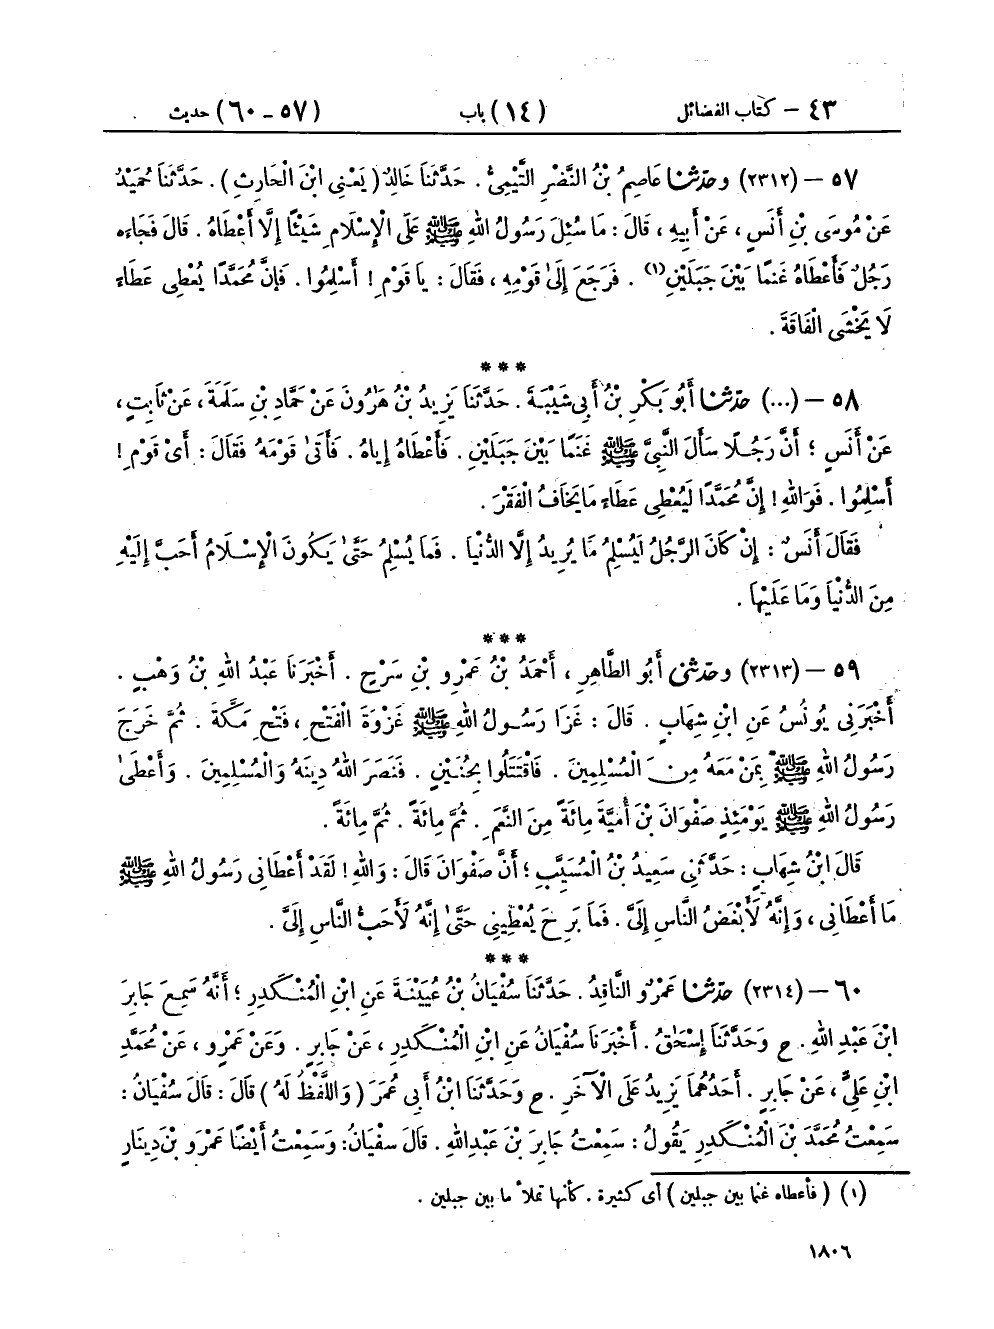 ٤٣ – كتاب الفضائل (١٤) باب (٥٧ – ٦٠) حديث
٥٧ – (٢٣١٢) وحَدَّثَنَا عَاصِمُ بْنُ النَّضْرِ التَّيْمِيُّ . حَدَّثَنَا خَالِدٌ ( يَعْنِي ابْنَ الْحَارِثِ ) . حَدَّثَنَا حُمَيْدٌ
عَنْ مُوسَى بْنِ أَنَسٍ ، عَنْ أَبِيهِ ، قَالَ : مَا سُئِلَ رَسُولُ اللهِ ﷺ عَلَى الْإِسْلَامِ شَيْئًا إِلَّا أَعْطَاهُ . قَالَ فَجَاءَهُ
رَجُلٌ فَأَعْطَاهُ غَنَمًا بَيْنَ جَبَلَيْنِ (١) . فَرَجَعَ إِلَىٰ قَوْمِهِ ، فَقَالَ : يَا قَوْمِ ! أَسْلِمُوا . فَإِنَّ مُحَمَّدًا يُعْطِي عَطَاءً
لَا يَخْشَى الْفَاقَةَ .
***
٥٨ – (...) حَدَّثَنَا أَبُو بَكْرِ بْنُ أَبِي شَيْبَةَ . حَدَّثَنَا يَزِيدُ بْنُ هَارُونَ عَنْ حَمَّادِ بْنِ سَلَمَةَ ، عَنْ ثَابِتٍ ،
عَنْ أَنَسٍ ؛ أَنَّ رَجُلًا سَأَلَ النَّبِيَّ ﷺ غَنَمًا بَيْنَ جَبَلَيْنِ . فَأَعْطَاهُ إِيَّاهُ . فَأَتَىٰ قَوْمَهُ فَقَالَ : أَىْ قَوْمِ !
أَسْلِمُوا . فَوَاللهِ ! إِنَّ مُحَمَّدًا لَيُعْطِي عَطَاءً مَا يَخَافُ الْفَقْرَ .
فَقَالَ أَنَسٌ : إِنْ كَانَ الرَّجُلُ لَيُسْلِمُ مَا يُرِيدُ إِلَّا الدُّنْيَا . فَمَا يُسْلِمُ حَتَّىٰ يَكُونَ الْإِسْلَامُ أَحَبَّ إِلَيْهِ
مِنَ الدُّنْيَا وَمَا عَلَيْهَا .
***
٥٩ – (٢٣١٣) وحَدَّثَنِي أَبُو الطَّاهِرِ ، أَحْمَدُ بْنُ عَمْرِو بْنِ سَرْحٍ . أَخْبَرَنَا عَبْدُ اللهِ بْنُ وَهْبٍ .
أَخْبَرَنِي يُونُسُ عَنِ ابْنِ شِهَابٍ . قَالَ : غَزَا رَسُولُ اللهِ ﷺ غَزْوَةَ الْفَتْحِ ، فَتْحِ مَكَّةَ . ثُمَّ خَرَجَ
رَسُولُ اللهِ ﷺ بِمَنْ مَعَهُ مِنَ الْمُسْلِمِينَ . فَاقْتَتَلُوا بِحُنَيْنٍ . فَنَصَرَ اللهُ دِينَهُ وَالْمُسْلِمِينَ . وَأَعْطَىٰ
رَسُولُ اللهِ ﷺ يَوْمَئِذٍ صَفْوَانَ بْنَ أُمَيَّةَ مِائَةً مِنَ النَّعَمِ . ثُمَّ مِائَةً . ثُمَّ مِائَةً .
قَالَ ابْنُ شِهَابٍ : حَدَّثَنِي سَعِيدُ بْنُ الْمُسَيَّبِ ؛ أَنَّ صَفْوَانَ قَالَ : وَاللهِ ! لَقَدْ أَعْطَانِي رَسُولُ اللهِ ﷺ
مَا أَعْطَانِي ، وَإِنَّهُ لَأَبْغَضُ النَّاسِ إِلَيَّ . فَمَا بَرِحَ يُعْطِينِي حَتَّىٰ إِنَّهُ لَأَحَبُّ النَّاسِ إِلَيَّ .
***
٦٠ – (٢٣١٤) حَدَّثَنَا عَمْرٌو النَّاقِدُ . حَدَّثَنَا سُفْيَانُ بْنُ عُيَيْنَةَ عَنِ ابْنِ الْمُنْكَدِرِ ؛ أَنَّهُ سَمِعَ جَابِرَ
ابْنَ عَبْدِ اللهِ . ح وَحَدَّثَنَا إِسْحَٰقُ . أَخْبَرَنَا سُفْيَانُ عَنِ ابْنِ الْمُنْكَدِرِ ، عَنْ جَابِرٍ . وَعَنْ عَمْرٍو ، عَنْ مُحَمَّدِ
ابْنِ عَلِيٍّ ، عَنْ جَابِرٍ . أَحَدُهُمَا يَزِيدُ عَلَى الْآخَرِ . ح وَحَدَّثَنَا ابْنُ أَبِي عُمَرَ ( وَاللَّفْظُ لَهُ ) قَالَ : قَالَ سُفْيَانُ :
سَمِعْتُ مُحَمَّدَ بْنَ الْمُنْكَدِرِ يَقُولُ : سَمِعْتُ جَابِرَ بْنَ عَبْدِ اللهِ . قَالَ سُفْيَانُ : وَسَمِعْتُ أَيْضًا عَمْرَو بْنَ دِينَارٍ
(١) ( فأعطاه غنما بين جبلين ) أى كثيرة . كأنها تملأ ما بين جبلين .
١٨٠٦